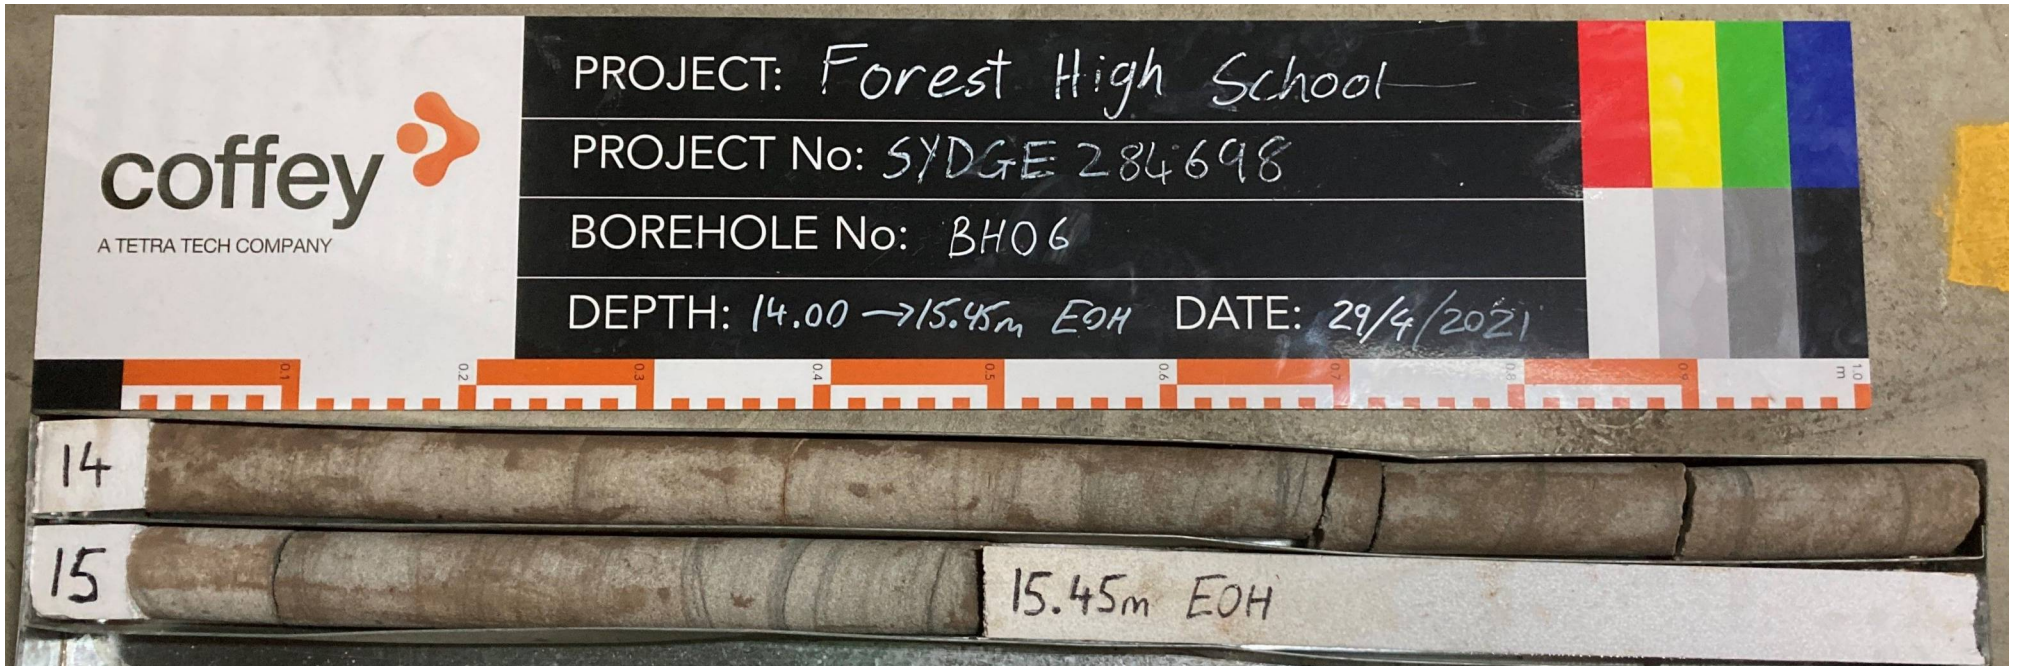 coffey
A TETRA TECH COMPANY
PROJECT: Forest High School
PROJECT No: SYDGE 284698
BOREHOLE No: BH06
DEPTH: 14.00 →15.45m EOH DATE: 29/4/2021
0.1 0.2 0.3 0.4 0.5 0.6 0.7 0.8 0.9 1.0
m
14
15
15.45m EOH